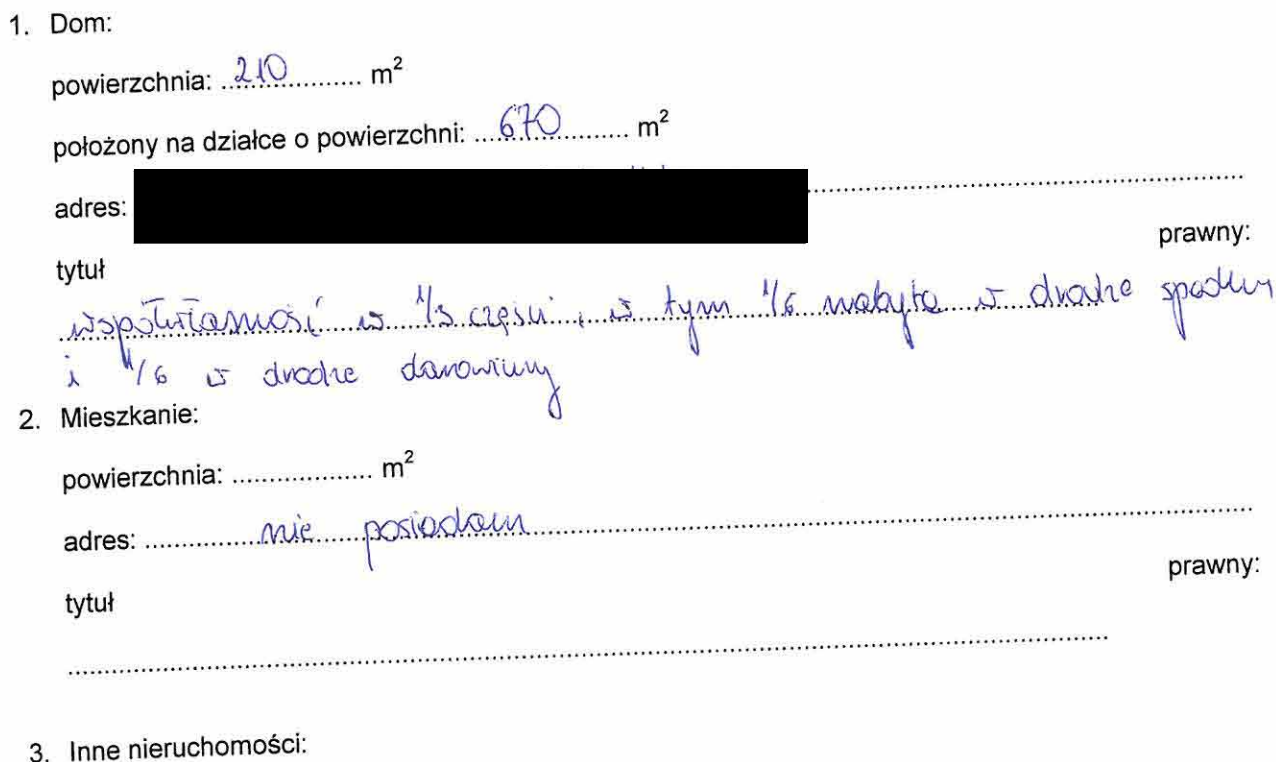 1. Dom:
powierzchnia: 210 m²
położony na działce o powierzchni: 670 m²
adres:
tytuł prawny:
współwłasność w 1/3 części, w tym 1/6 nabyta w drodze spadku
i 1/6 w drodze darowizny
2. Mieszkanie:
powierzchnia: .................. m²
adres: nie posiadam
tytuł prawny:
3. Inne nieruchomości: